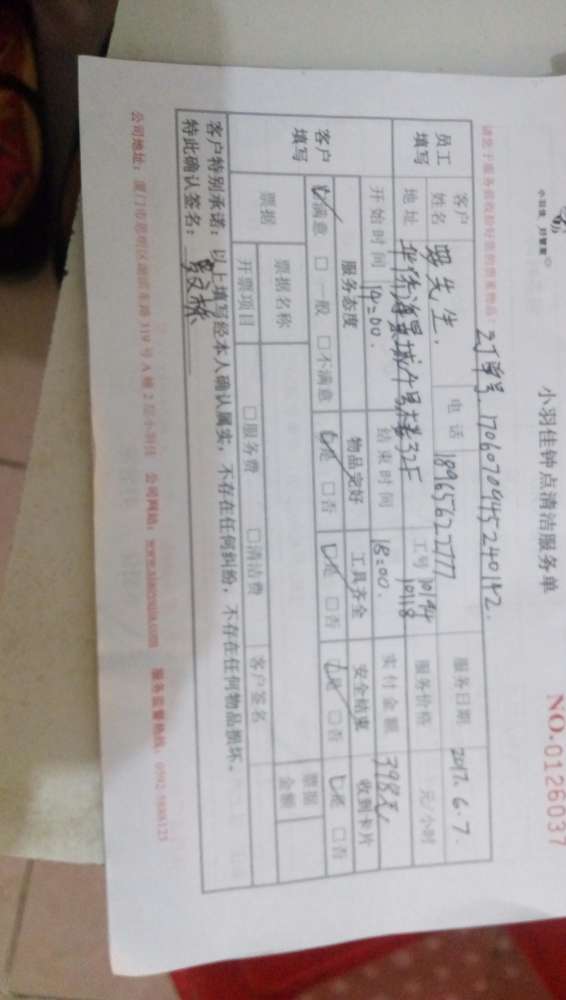 小羽佳钟点清洁服务单
NO.0126037
请您于服务前收拾好您的贵重物品！
订单号 17060709445240142.
员工填写
客户姓名 先生. 电话 18965622777 服务日期 2017.6.7.
地址 华侨海景城 号楼32F 工号 10144 10118 服务价格 元/小时
开始时间 14:00. 结束时间 18:00. 实付金额 398元
客户填写
服务态度 物品完好 工具齐全 安全结束 收到卡片
☑满意 □一般 □不满意 ☑是 □否 ☑是 □否 ☑是 □否 ☑是 □否
票据 票据名称 票据金额
开票项目 □服务费 □清洁费 客户签名
客户特别承诺：以上填写经本人确认属实，不存在任何纠纷，不存在任何物品损坏。
特此确认签名：
公司地址：厦门市思明区 319号A栋2层小羽佳 公司网站： 服务监督热线：0592-5888125